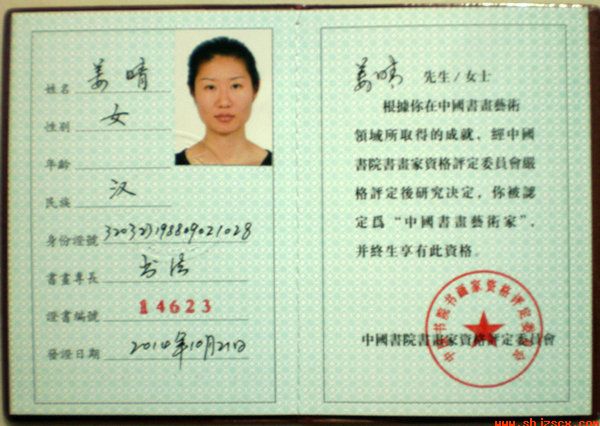 姓名 姜晴
性別 女
年齡
民族 汉
身份證號 320323198809021028
書畫專長 书法
證書編號 14623
發證日期 2014年10月21日
姜晴 先生/女士
根據你在中國書畫藝術
領域所取得的成就，經中國
書院書畫家資格評定委員會嚴
格評定後研究決定，你被認
定爲“中國書畫藝術家”，
并終生享有此資格。
中國書院書畫家資格評定委員會